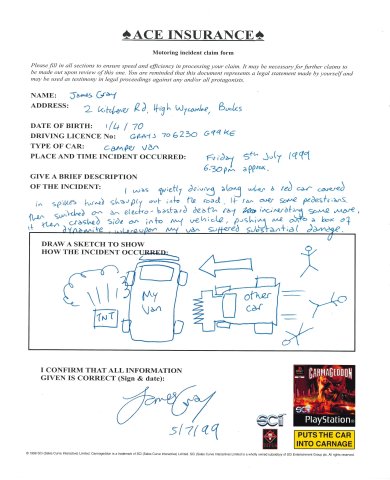 ♠ACE INSURANCE♠
Motoring incident claim form
Please fill in all sections to ensure speed and efficiency in processing your claim. It may be necessary for further claims to
be made out upon review of this one. You are reminded that this document represents a legal statement made by yourself and
may be used as testimony in legal proceedings against any and/or all protagonists.
NAME: James Gray
ADDRESS: 2 Kitchener Rd, High Wycombe, Bucks
DATE OF BIRTH: 1/4/70
DRIVING LICENCE No: GRAYS 706230 G99KE
TYPE OF CAR: Camper Van
PLACE AND TIME INCIDENT OCCURRED: Friday 5th July 1999
6:30pm approx.
GIVE A BRIEF DESCRIPTION
OF THE INCIDENT: I was quietly driving along when a red car covered
in spikes turned sharply out into the road. It ran over some pedestrians
then switched on an electro-bastard death ray incinerating some more,
it then crashed side on into my vehicle, pushing me onto a box of
dynamite whereupon my van suffered substantial damage.
DRAW A SKETCH TO SHOW
HOW THE INCIDENT OCCURRED:
TNT
My
Van
other
car
I CONFIRM THAT ALL INFORMATION
GIVEN IS CORRECT (Sign & date):
James Gray
5/7/99
CARMAGEDDON
SCi
PlayStation
SCi
PUTS THE CAR
INTO CARNAGE